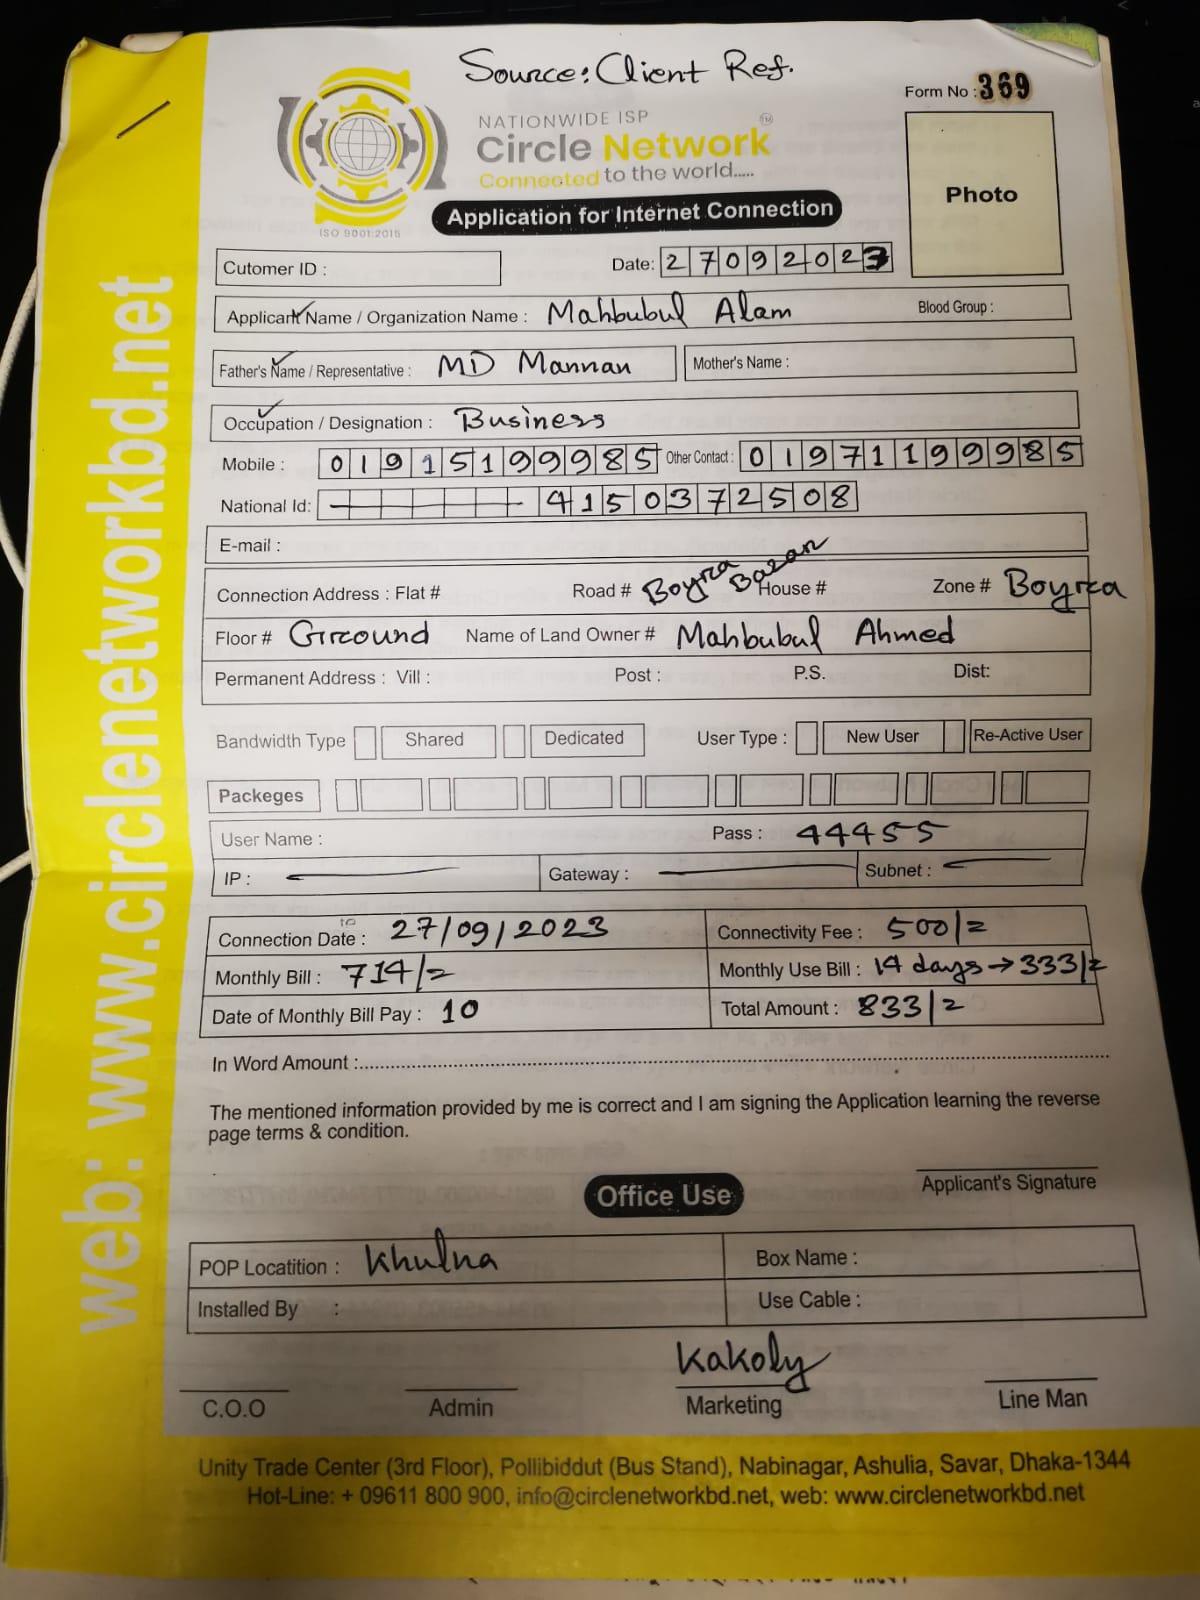 Source: Client Ref.
Form No : 369
NATIONWIDE ISP
Circle Network TM
Connected to the world.....
ISO 9001:2015
Application for Internet Connection
Photo
Cutomer ID :
Date: 27092023
Applicant Name / Organization Name : Mahbubul Alam Blood Group :
Father's Name / Representative : MD Mannan Mother's Name :
Occupation / Designation : Business
Mobile : 01915199985 Other Contact : 01971199985
National Id: 4150372508
E-mail :
Connection Address : Flat # Road # Boyra Bazar House # Zone # Boyra
Floor # Ground Name of Land Owner # Mahbubul Ahmed
Permanent Address : Vill : Post : P.S. Dist:
Bandwidth Type Shared Dedicated User Type : New User Re-Active User
Packeges
User Name : Pass : 44455
IP : Gateway : Subnet :
Connection Date : 27/09/2023 Connectivity Fee : 500/=
Monthly Bill : 714/= Monthly Use Bill : 14 days → 333/=
Date of Monthly Bill Pay : 10 Total Amount : 833/=
In Word Amount :
The mentioned information provided by me is correct and I am signing the Application learning the reverse
page terms & condition.
Applicant's Signature
Office Use
POP Locatition : Khulna Box Name :
Installed By : Use Cable :
Kakoly
C.O.O Admin Marketing Line Man
Unity Trade Center (3rd Floor), Pollibiddut (Bus Stand), Nabinagar, Ashulia, Savar, Dhaka-1344
Hot-Line: + 09611 800 900, info@circlenetworkbd.net, web: www.circlenetworkbd.net
web: www.circlenetworkbd.net